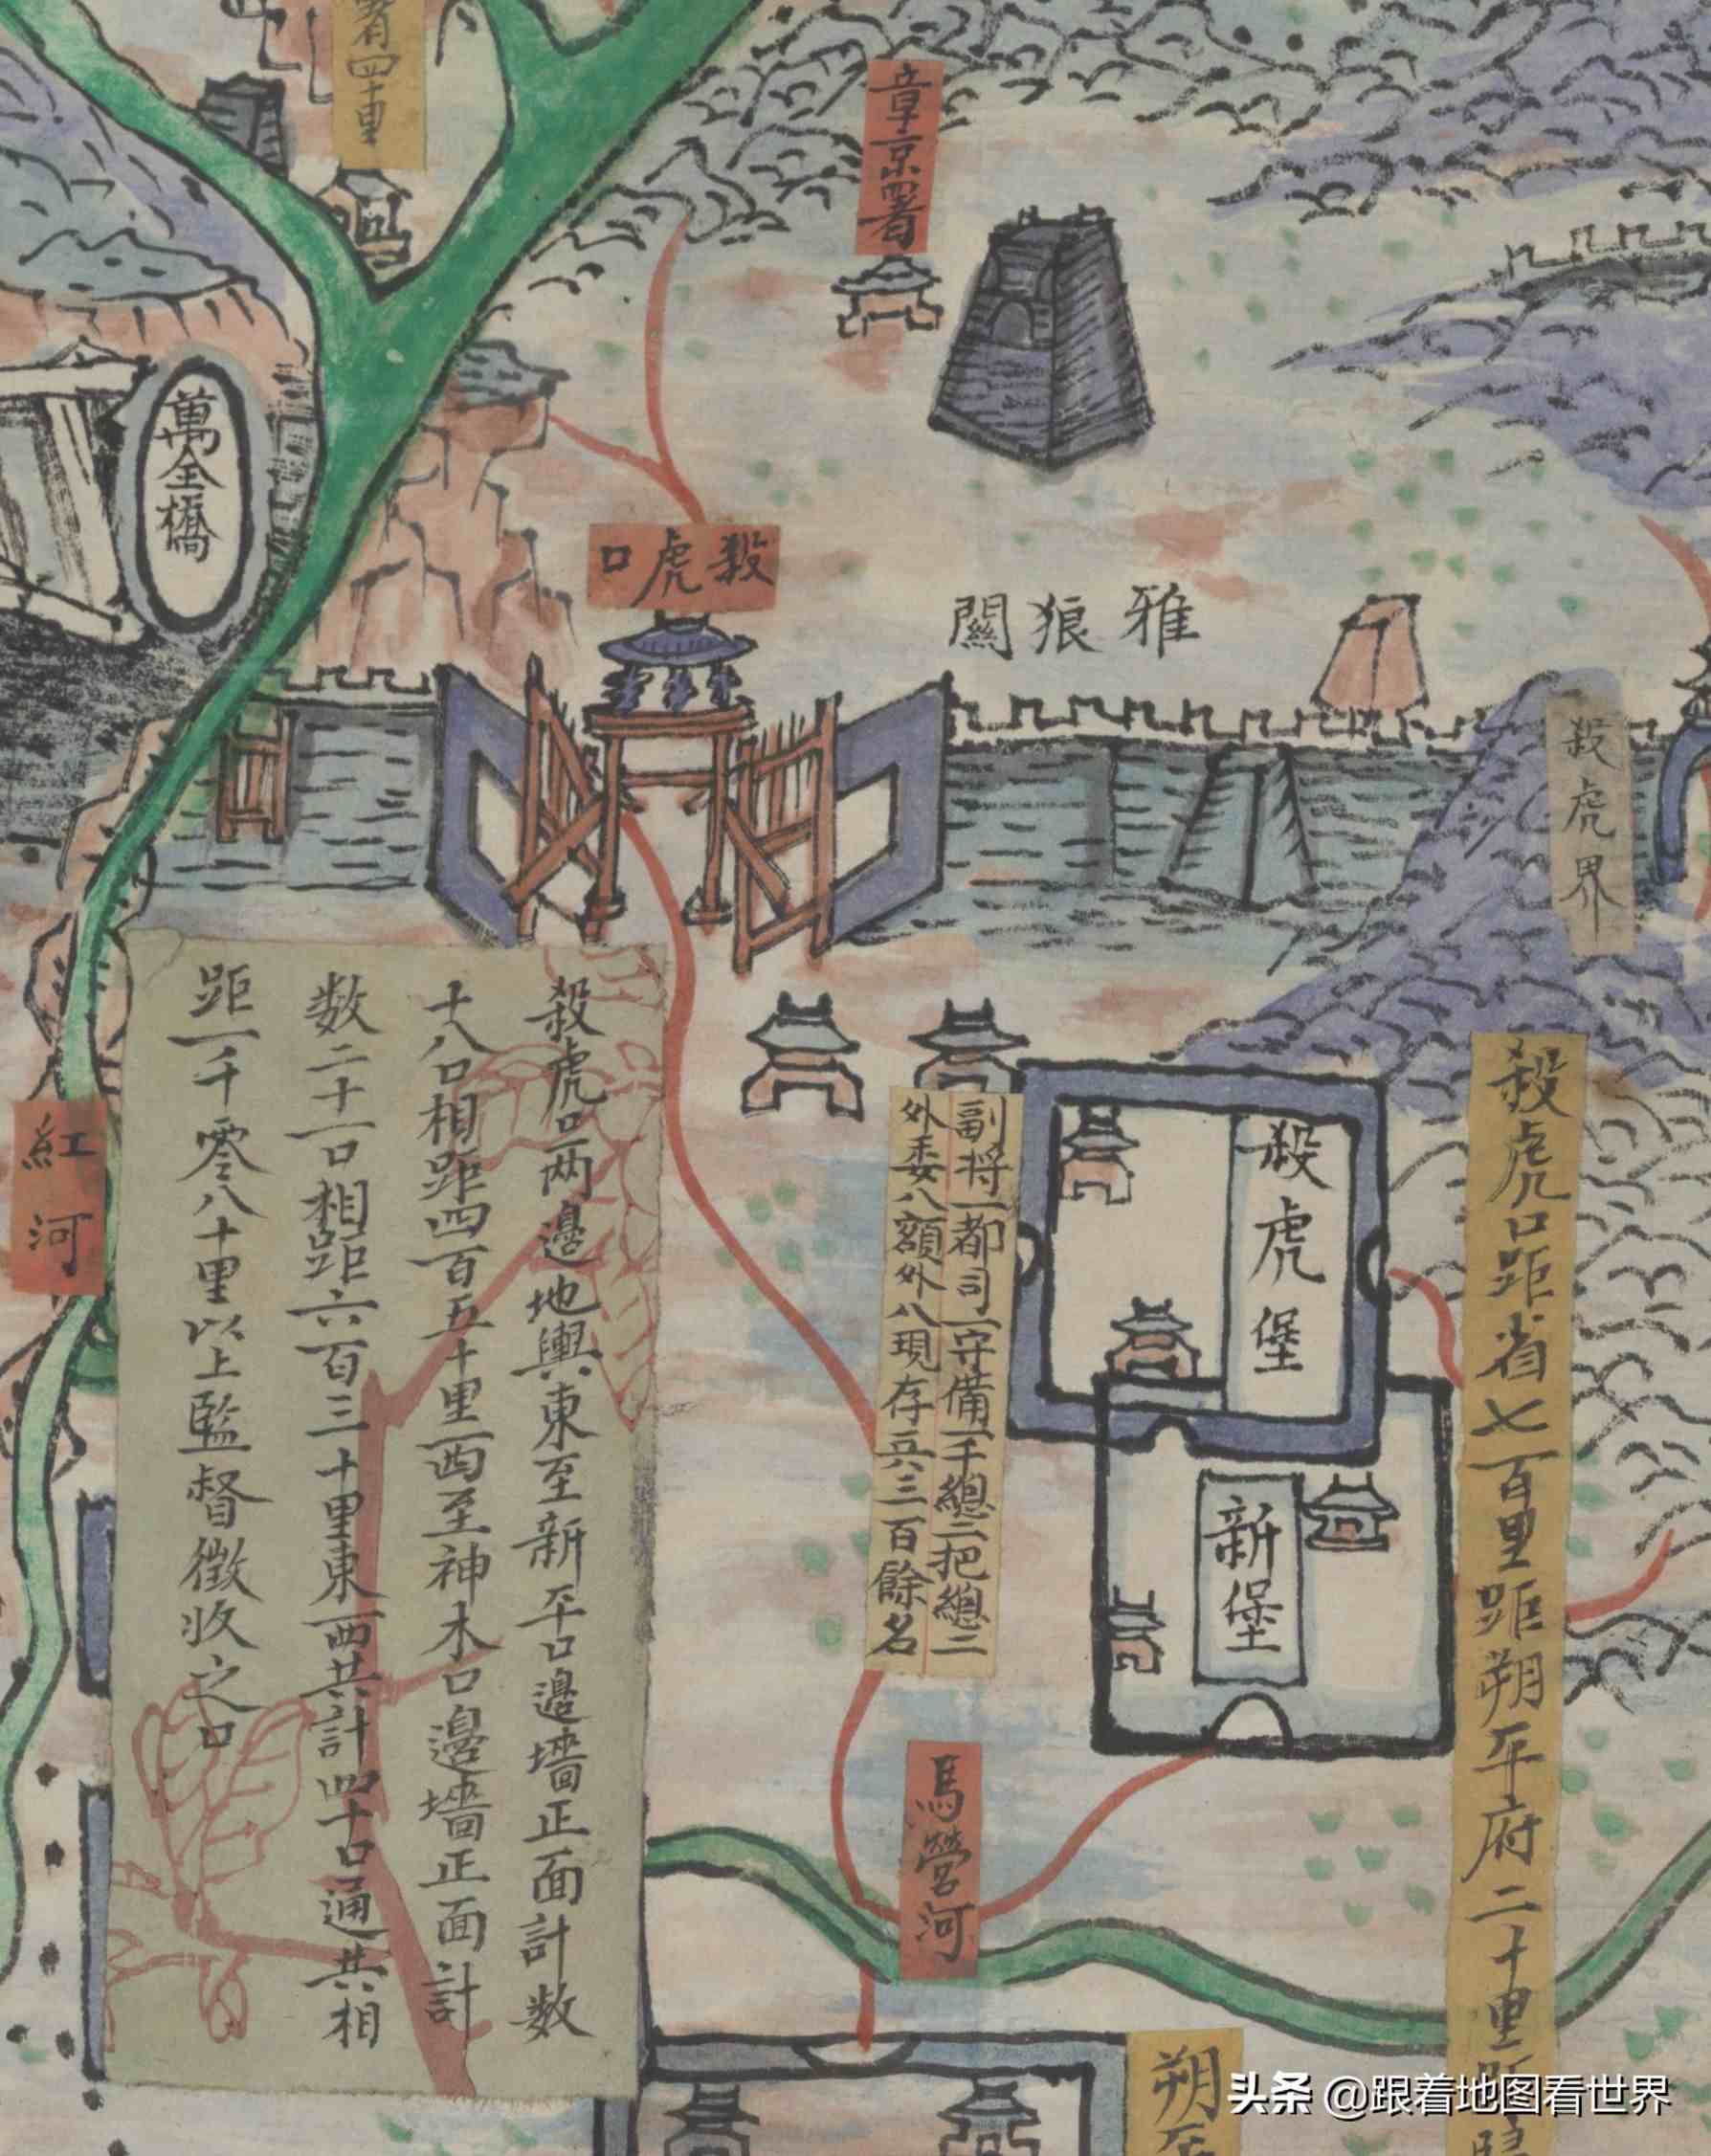 四十里
章京署
萬全橋
殺虎口
雅狼關
殺虎界
殺虎口两邊地輿東至新平口邊墻正面計数
十八口相距四百五十里西至神木口邊墻正面計
数二十一口相距六百三十里東西共計四十口通共相
距一千零八十里以上監督徵收之口
紅河
副将一都司一守備一千總二把總二
外委八額外八現存兵三百餘名
殺虎堡
新堡
殺虎口距省七百里距朔平府二十里距
馬營河
朔平
头条 @跟着地图看世界